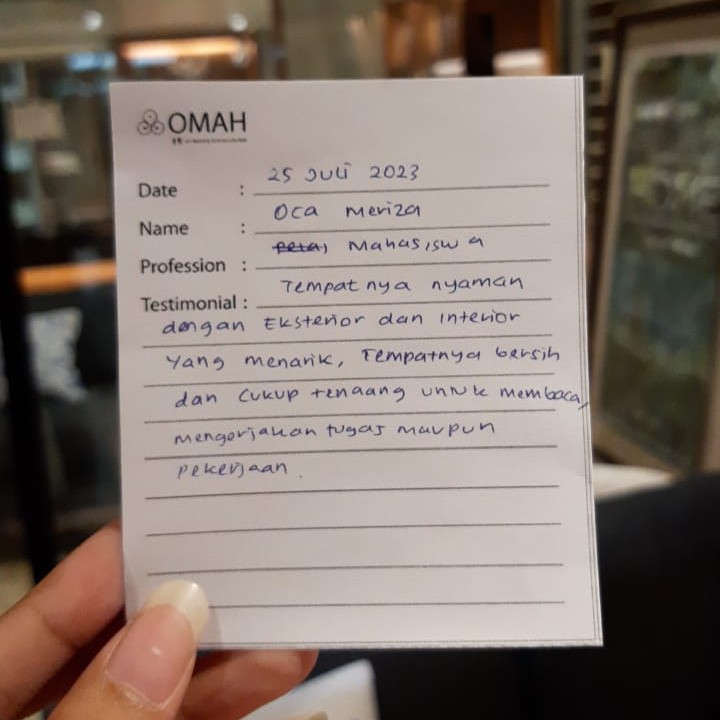 OMAH
Date : 25 Juli 2023
Name : Oca Meriza
Profession : Mahasiswa
Testimonial : Tempatnya nyaman
dengan Eksterior dan interior
yang menarik, Tempatnya bersih
dan cukup tenaang untuk membaca,
mengerjakan tugas maupun
pekerjaan.